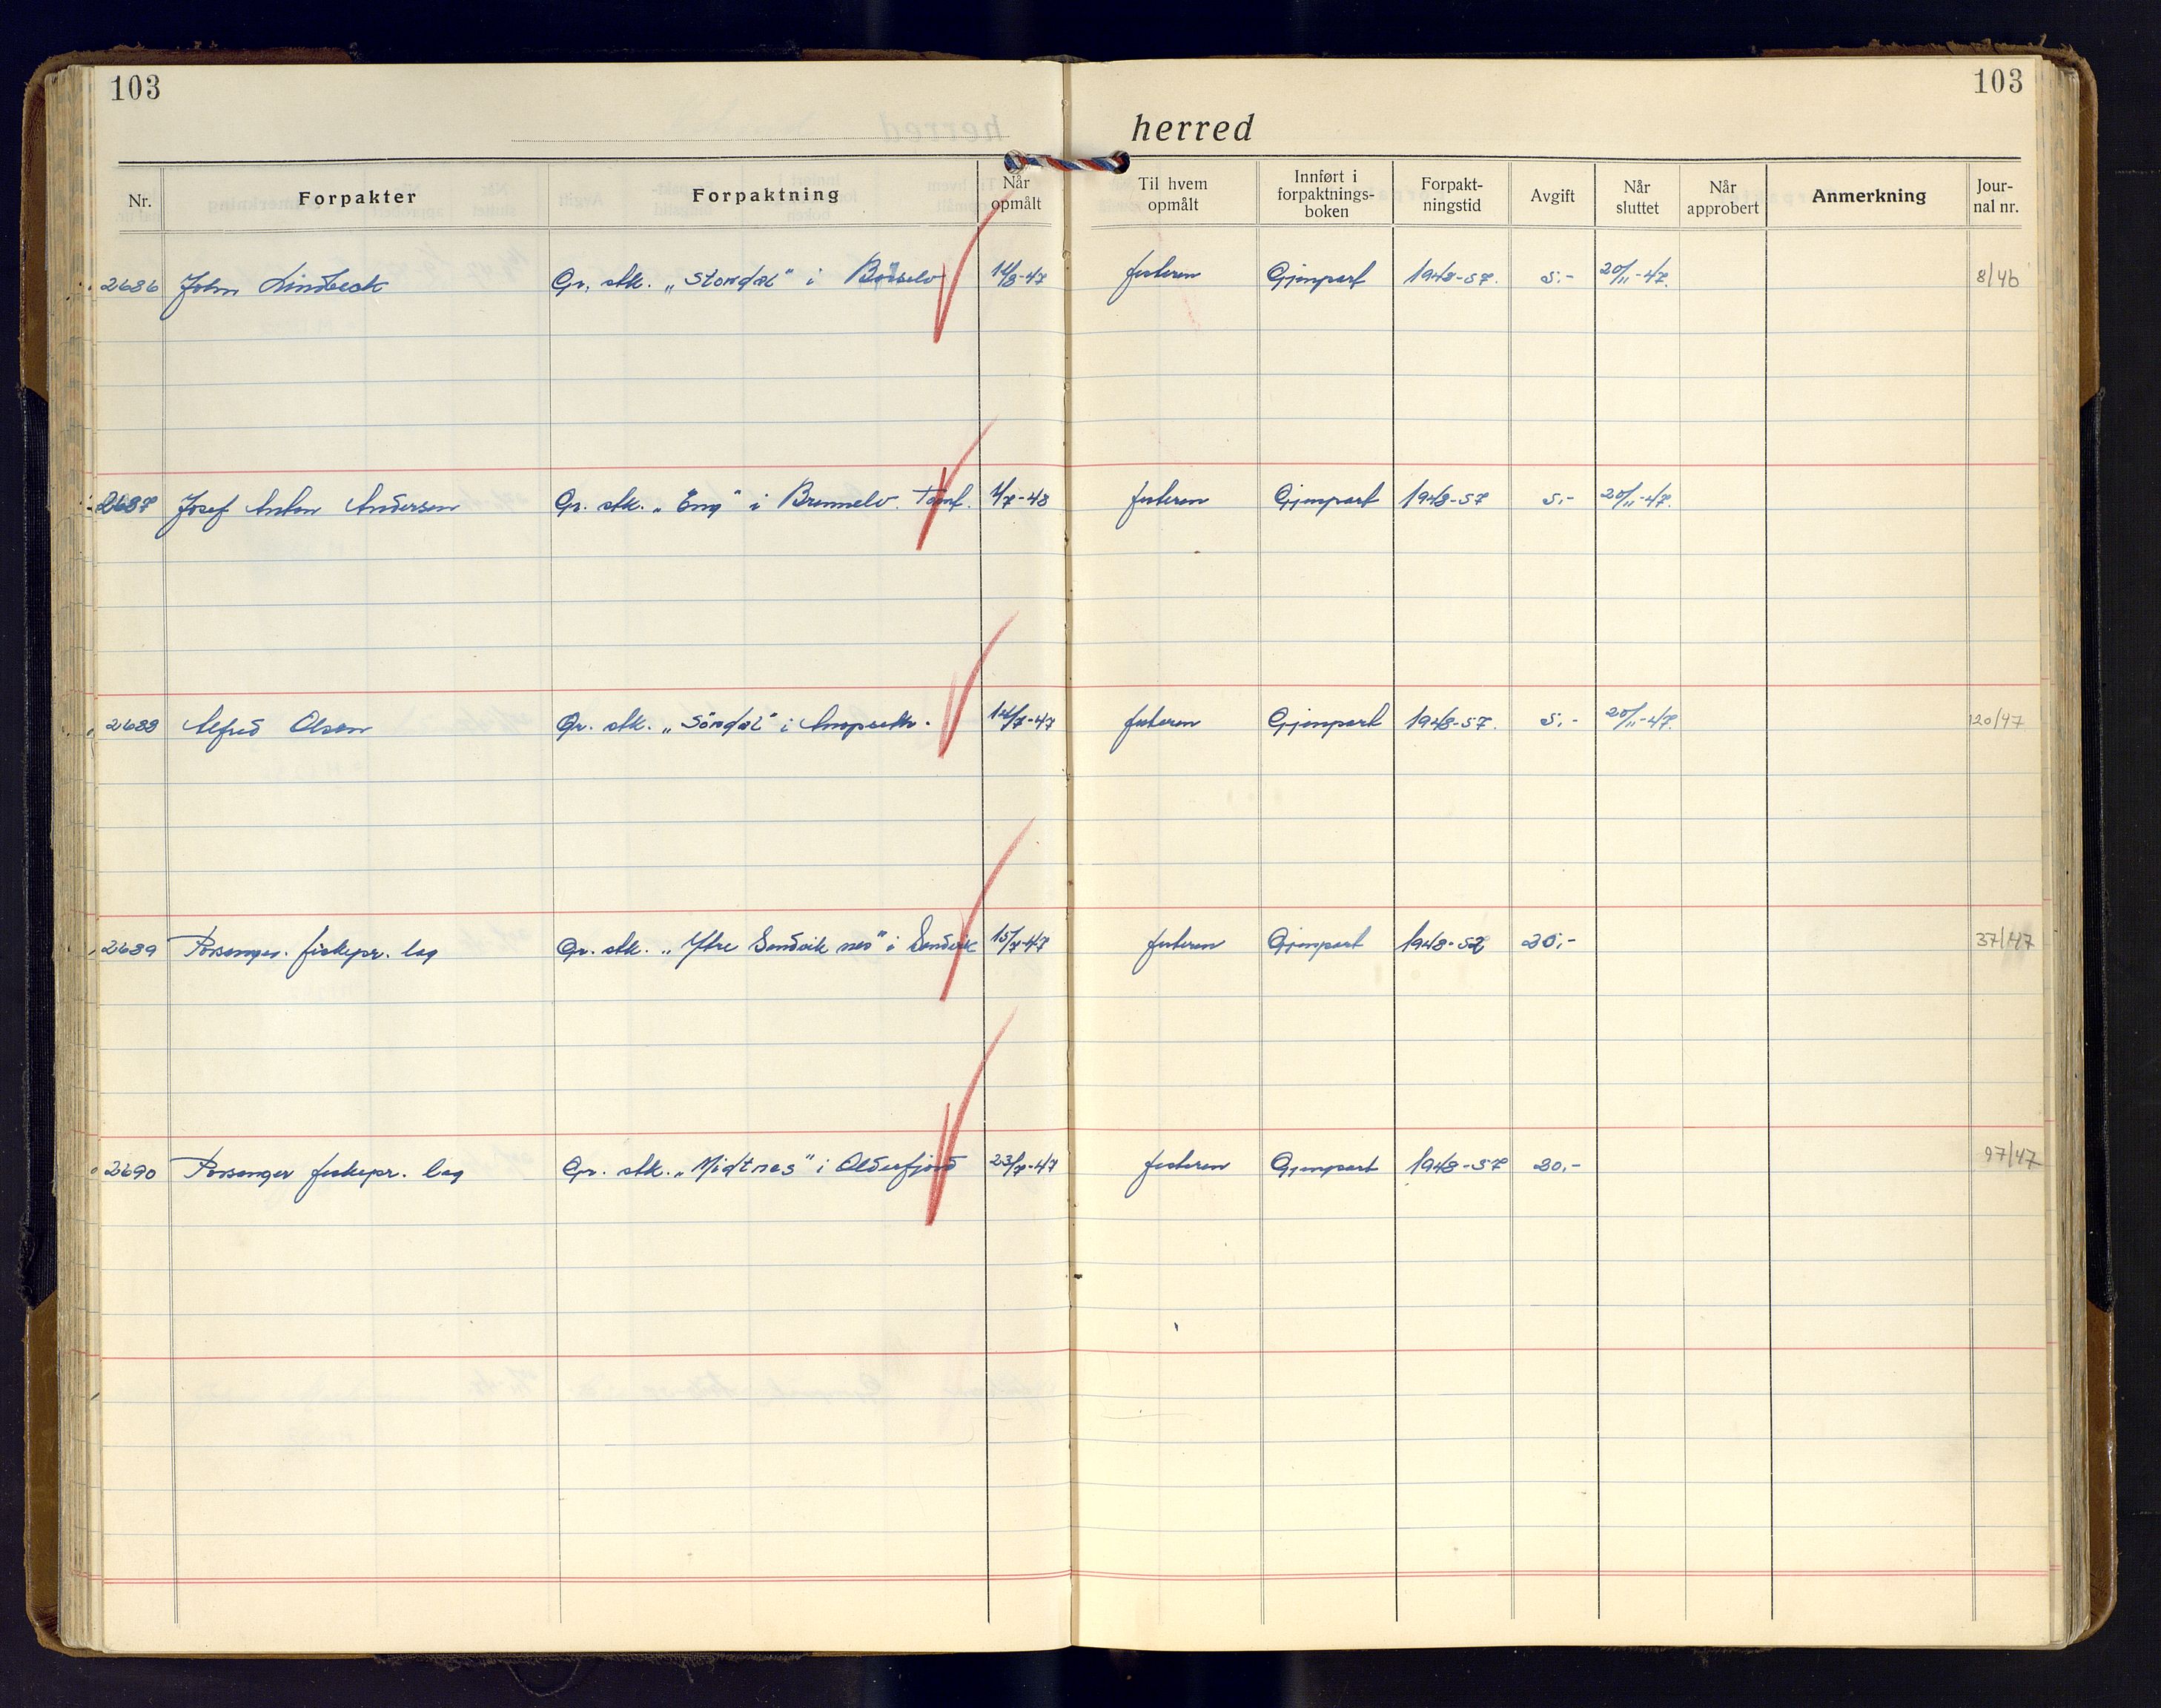 103
103
herred
Nr. Forpakter Forpaktning Når opmålt Til hvem opmålt Innført i forpaktnings-boken Forpakt-ningstid Avgift Når sluttet Når approbert Anmerkning Jour-nal nr.
2686 John Lindbeck Gr. stk. „Stordal" i Børselv -47 festeren Gjenpart 1948-57. 5.- 20/11-47. 8/46
2687 Josef Anton Andersen Gr. stk. „Eng" i Brennelv. Tomt. 1/7-48 festeren Gjenpart 1948-57 5.- 20/11-47.
2688 Alfred Olsen Gr. stk. „Sördal" i 14/7-47 festeren Gjenpart 1948-57. 5.- 20/11-47. 120/47
2689 Porsanger. fiskepr. lag Gr. stk. „Ytre Sandvik nes" i Sandvik 15/7-47 festeren Gjenpart 1948-52 20.- 37/47
2690 Porsanger fiskepr. lag Gr. stk. „Midtnes" i Olderfjord 23/7-47 festeren Gjenpart 1948-57 20.- 97/47